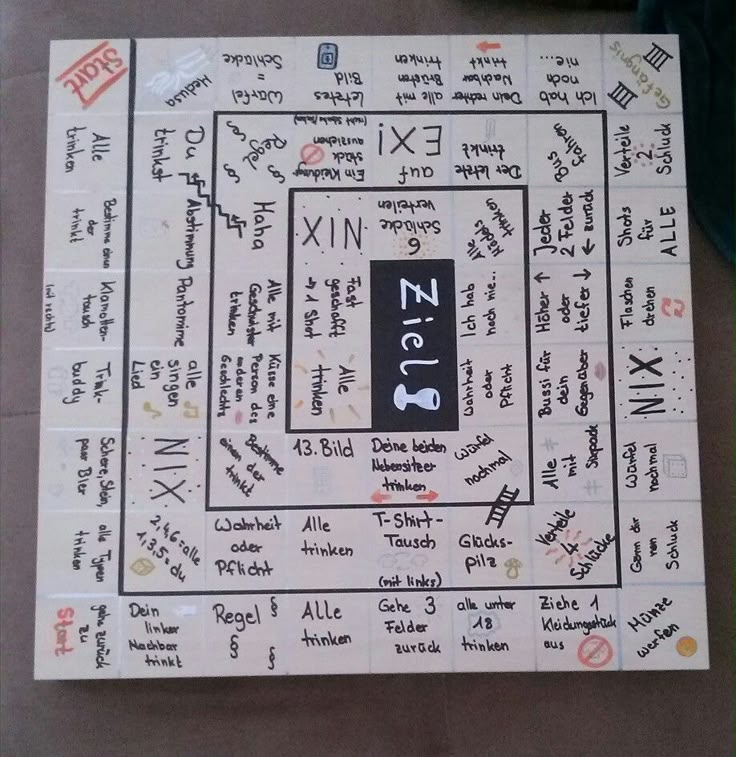 Start
Alle
trinken
Bestimme einen
der
trinkt
Klamotten-
tausch
(mit rechts)
Trink-
buddy
Schere, Stein,
Papier Bier
alle Typen
trinken
gehe zurück
zu
Start
Dein
linker
Nachbar
trinkt
Regel
Alle
trinken
Gehe 3
Felder
zurück
alle unter
18
trinken
Ziehe 1
Kleidungsstück
aus
Münze
werfen
Gönn dir
nen
Schluck
Würfel
nochmal
NIX
Flaschen
drehen
Shots
für
ALLE
Verteile
2
Schluck
Gefängnis
Ich hab
noch
nie...
Dein rechter
Nachbar
trinkt
alle mit
Brüsten
trinken
letztes
Bild
Würfel
=
Schlücke
Medusa
Du
trinkst
Abstimmung
Pantomime
alle
singen
ein
Lied
NIX
2,4,6=alle
1,3,5=du
Wahrheit
oder
Pflicht
Alle
trinken
T-Shirt-
Tausch
(mit links)
Glücks-
pilz
Verteile
4
Schlücke
Alle
mit
Sixpack
Bussi für
dein
Gegenüber
Höher
oder
tiefer
Jeder
2 Felder
zurück
Bus
fahren
Der letzte
trinkt
auf
EX!
Ein Kleidungs-
stück
ausziehen
Regel
Haha
Alle mit
Geschwister
trinken
Küsse eine
Person des
anderen
Geschlechts
Bestimme
einen der
trinkt
13. Bild
Deine beiden
Nebensitzer
trinken
Würfel
nochmal
Wahrheit
oder
Pflicht
Ich hab
noch nie...
Alle
Mädels
trinken
6
Schlücke
verteilen
NIX
Fast
geschafft
→ 1 Shot
Alle
trinken
Ziel